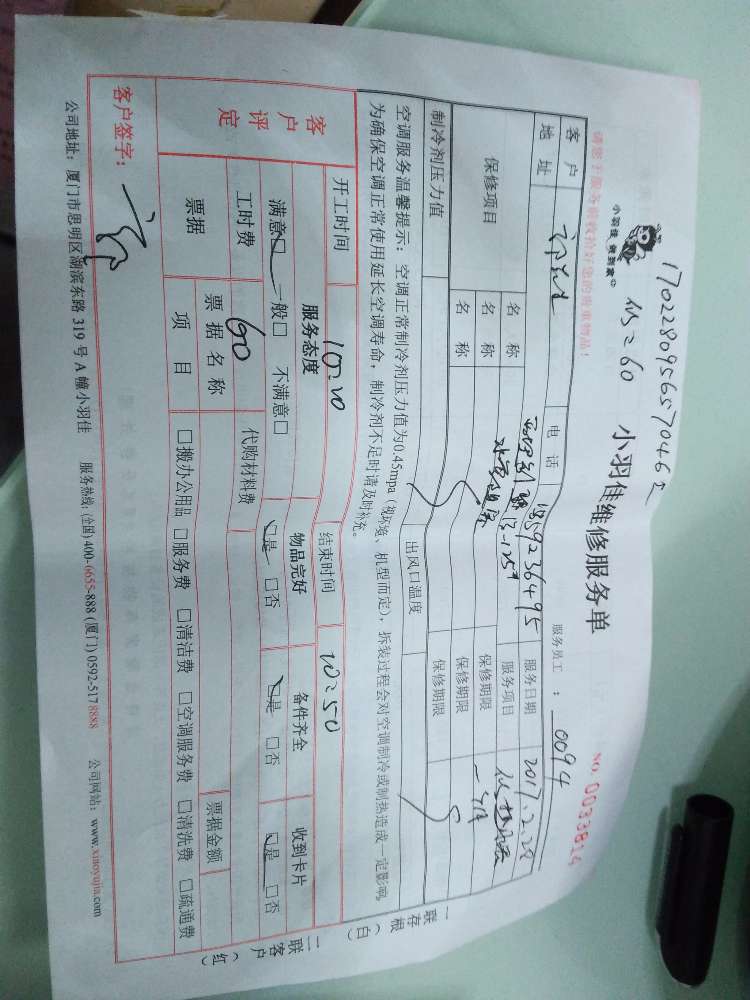 17022809565704
小羽佳 做到家
收=60
小羽佳维修服务单
NO. 0033814
请您于服务前收拾好您的贵重物品!
服务员工 : 0094
客户
地址
电话
服务日期 2017.2.28
保修项目
名 称
服务项目
名 称
保修期限
一个月
保修期限
制冷剂压力值
出风口温度
保修期限
空调服务温馨提示: 空调正常制冷剂压力值为0.45mpa (视环境、机型而定), 拆装过程会对空调制冷或制热造成一定影响,
为确保空调正常使用延长空调寿命, 制冷剂不足时请及时补充。
开工时间 10=20 结束时间 10=50
客户评定
服务态度 物品完好 备件齐全 收到卡片
满意□ 一般□ 不满意□ □是 □否 □是 □否 □是 □否
工时费 60 代购材料费
票据
票据名称
票据金额
项 目 □搬办公用品 □服务费 □清洁费 □空调服务费 □清洗费 □疏通费
客户签字:
公司地址: 厦门市思明区湖滨东路 319 号 A 幢小羽佳 服务热线: (全国) 400-6655-888 (厦门) 0592-517 8888 公司网站: www.xiaoyujia.com
一联存根(白)
二联客户(红)